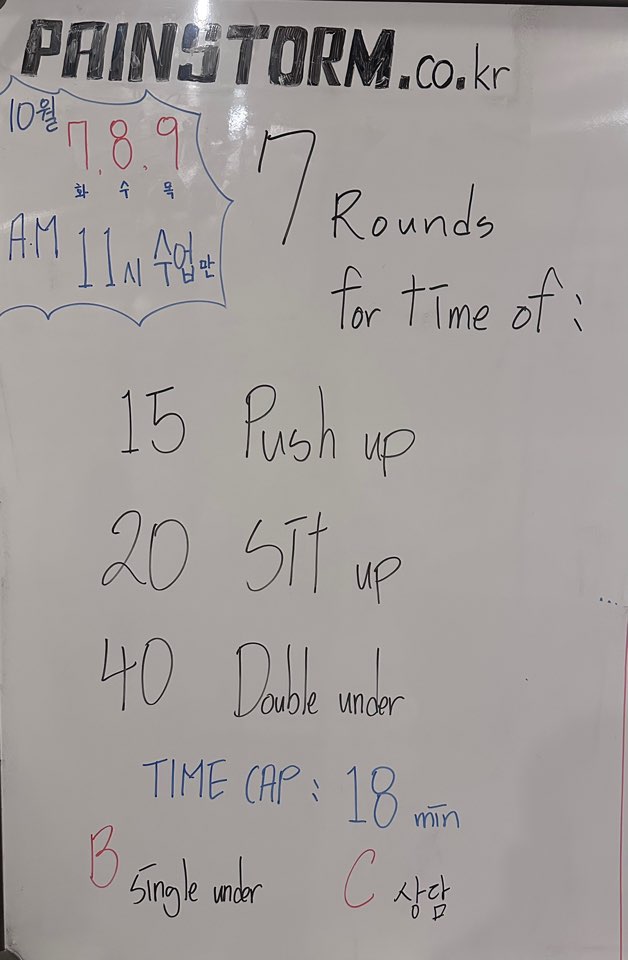 PAINSTORM.co.kr
10월
7.8.9
화 수 목
A.M 11시 수업만
7 Rounds
for time of:
15 Push up
20 Sit up
40 Double under
TIME CAP: 18 min
B single under
C 상담